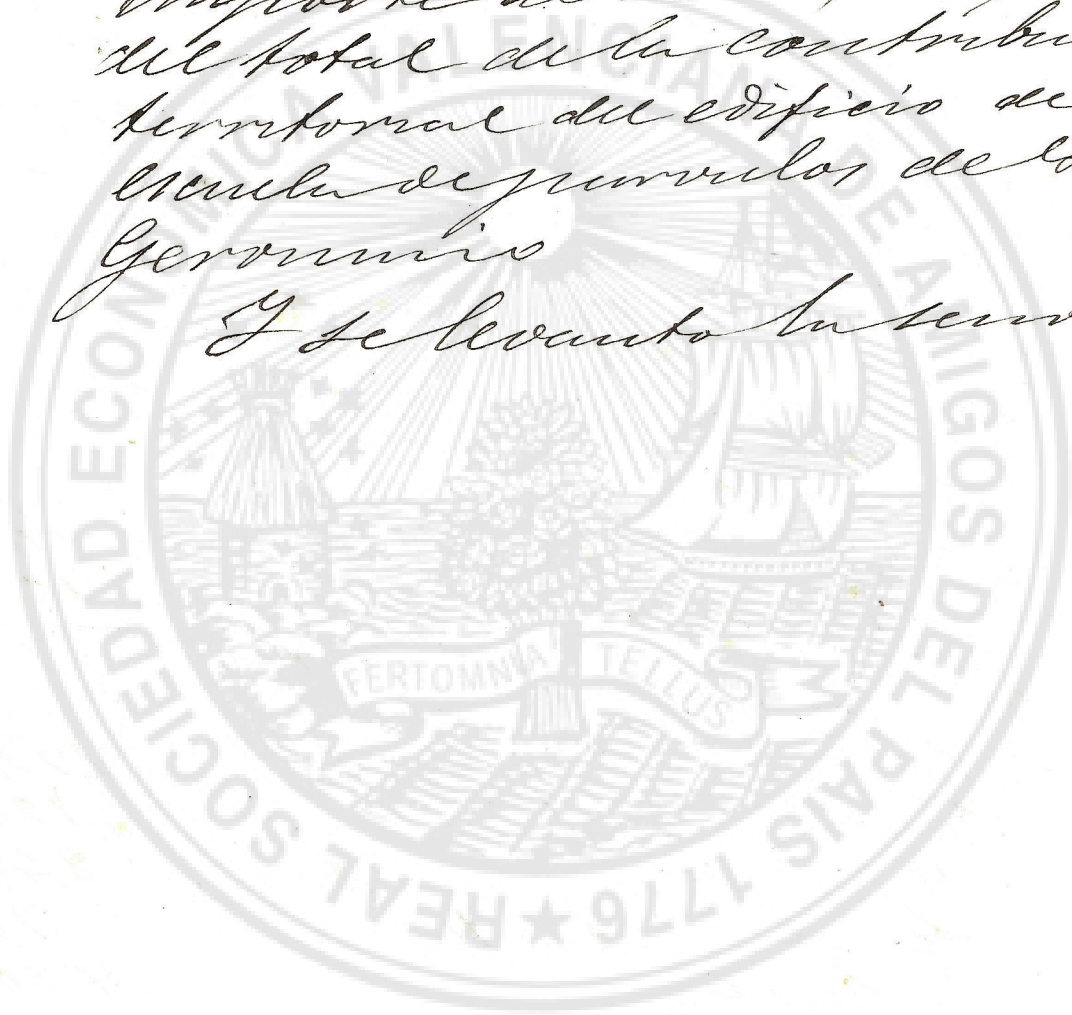 importe de
del total de la contribu
territorial del edificio de
escuela de parvulos de
Geronimo
Y se levanto la sesio
REAL SOCIEDAD ECONOMICA VALENCIANA DE AMIGOS DEL PAIS 1776
FERTOMNIA TELLUS